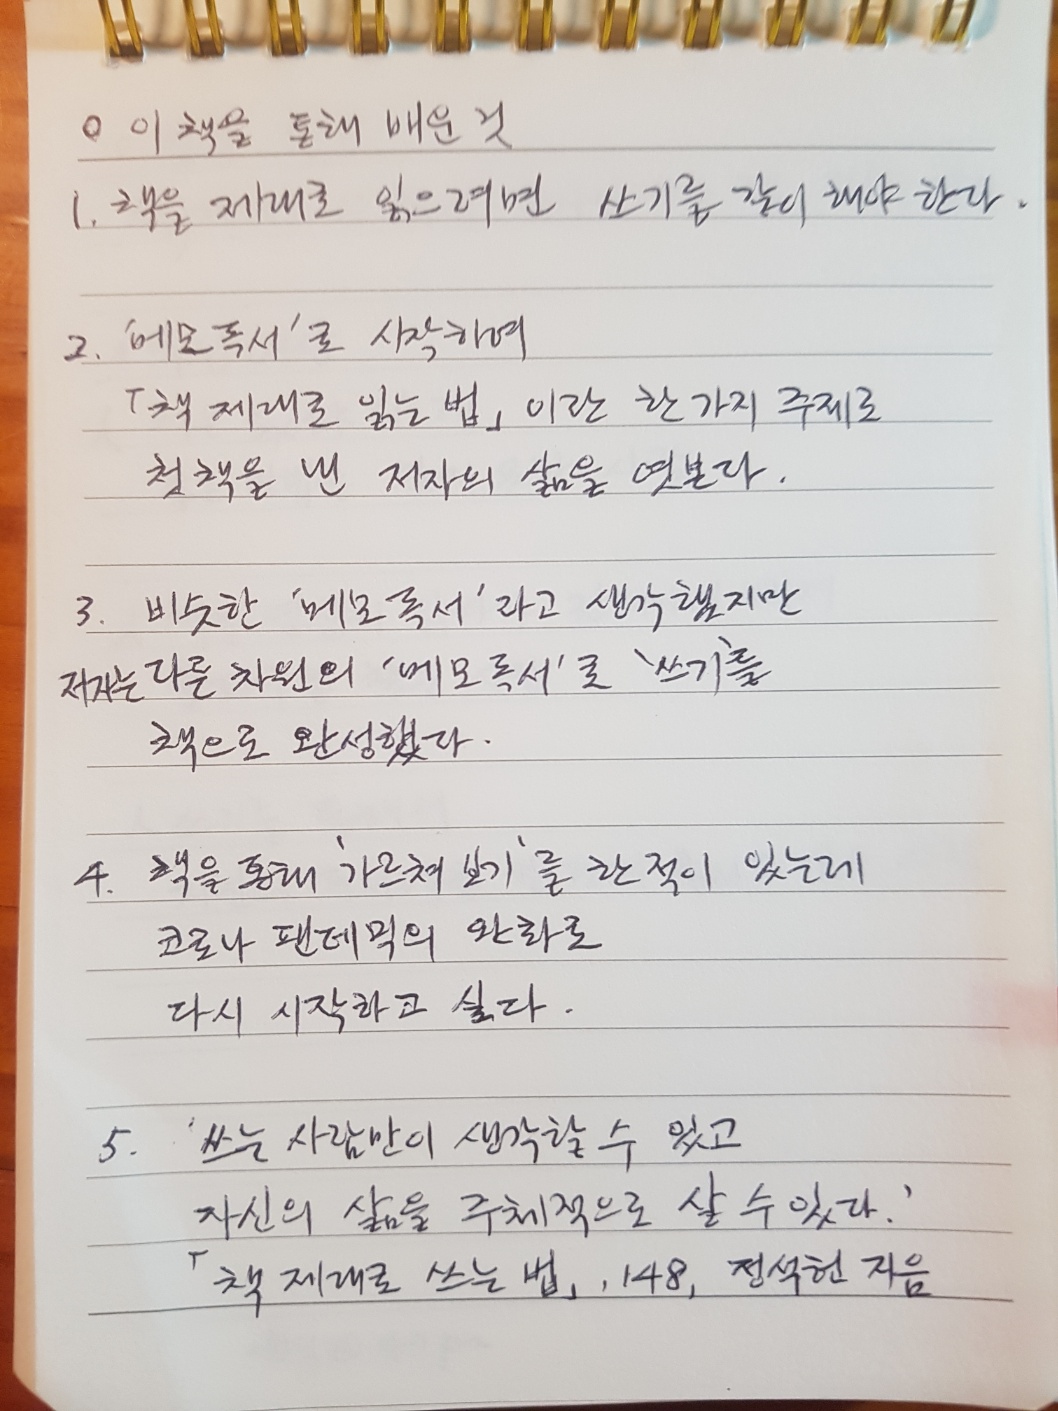 o 이 책을 통해 배운 것
1. 책을 제대로 읽으려면 쓰기를 같이 해야 한다.
2. '메모독서'로 시작하여
「책 제대로 읽는 법」 이란 한 가지 주제로
첫 책을 낸 저자의 삶을 엿본다.
3. 비슷한 '메모독서'라고 생각했지만
저자는 다른 차원의 '메모독서'로 '쓰기'를
책으로 완성했다.
4. 책을 통해 '가르쳐 보기'를 한 적이 있는데
코로나 팬데믹의 완화로
다시 시작하고 싶다.
5. '쓰는 사람만이 생각할 수 있고
자신의 삶을 주체적으로 살 수 있다.'
「책 제대로 쓰는 법」, 148, 정석헌 지음